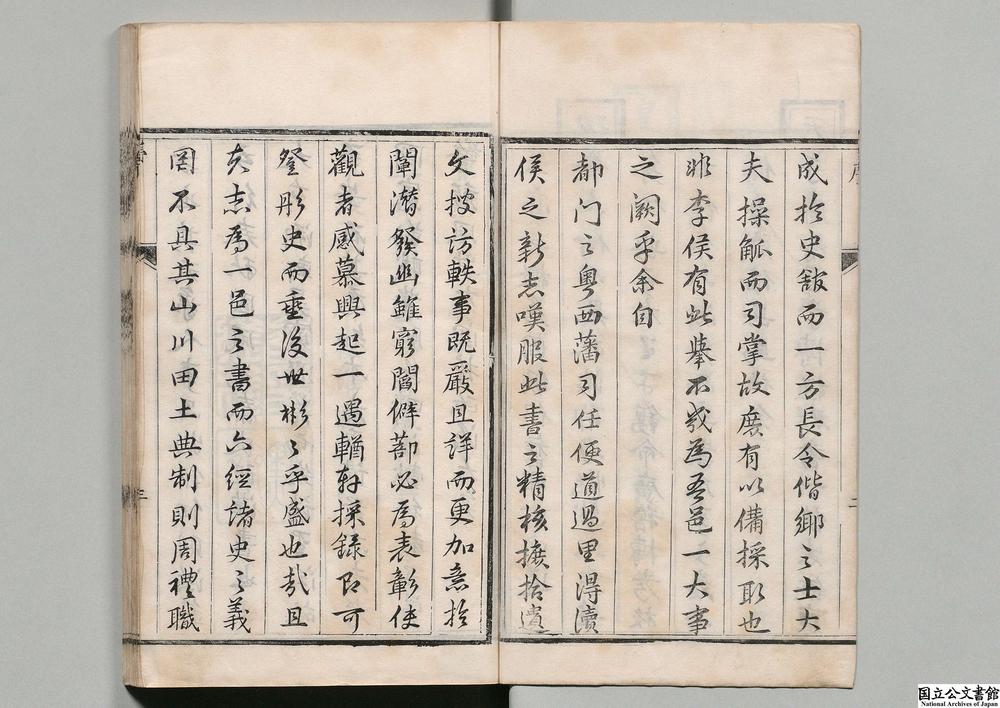 成於史館而一方長令偕鄉之士大
夫操觚而司掌故庶有以備採取也
非李侯有此舉不幾為吾邑一大事
之闕乎余自
都门之粵西藩司任便道過里得讀
侯之新志嘆服此書之精核摭拾遺
文披訪軼事既嚴且詳而更加意於
闡潛發幽雖窮閻僻蔀必為表彰使
觀者感慕興起一遇輶軒採錄即可
登彤史而垂後世彬彬乎盛也哉且
夫志為一邑之書而六經諸史之義
罔不具其山川田土典制則周禮職
序
二
三
国立公文書館
National Archives of Japan